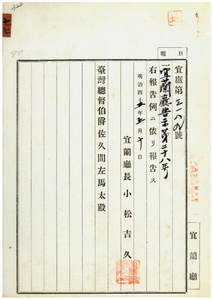 日報
宜庶第三一八九號
宜蘭廳告示第二十八號
右報告例ニ依リ報告ス
明治四十五年七月十日
宜蘭廳長 小松吉久
臺灣總督伯爵佐久間左馬太殿
宜蘭廳